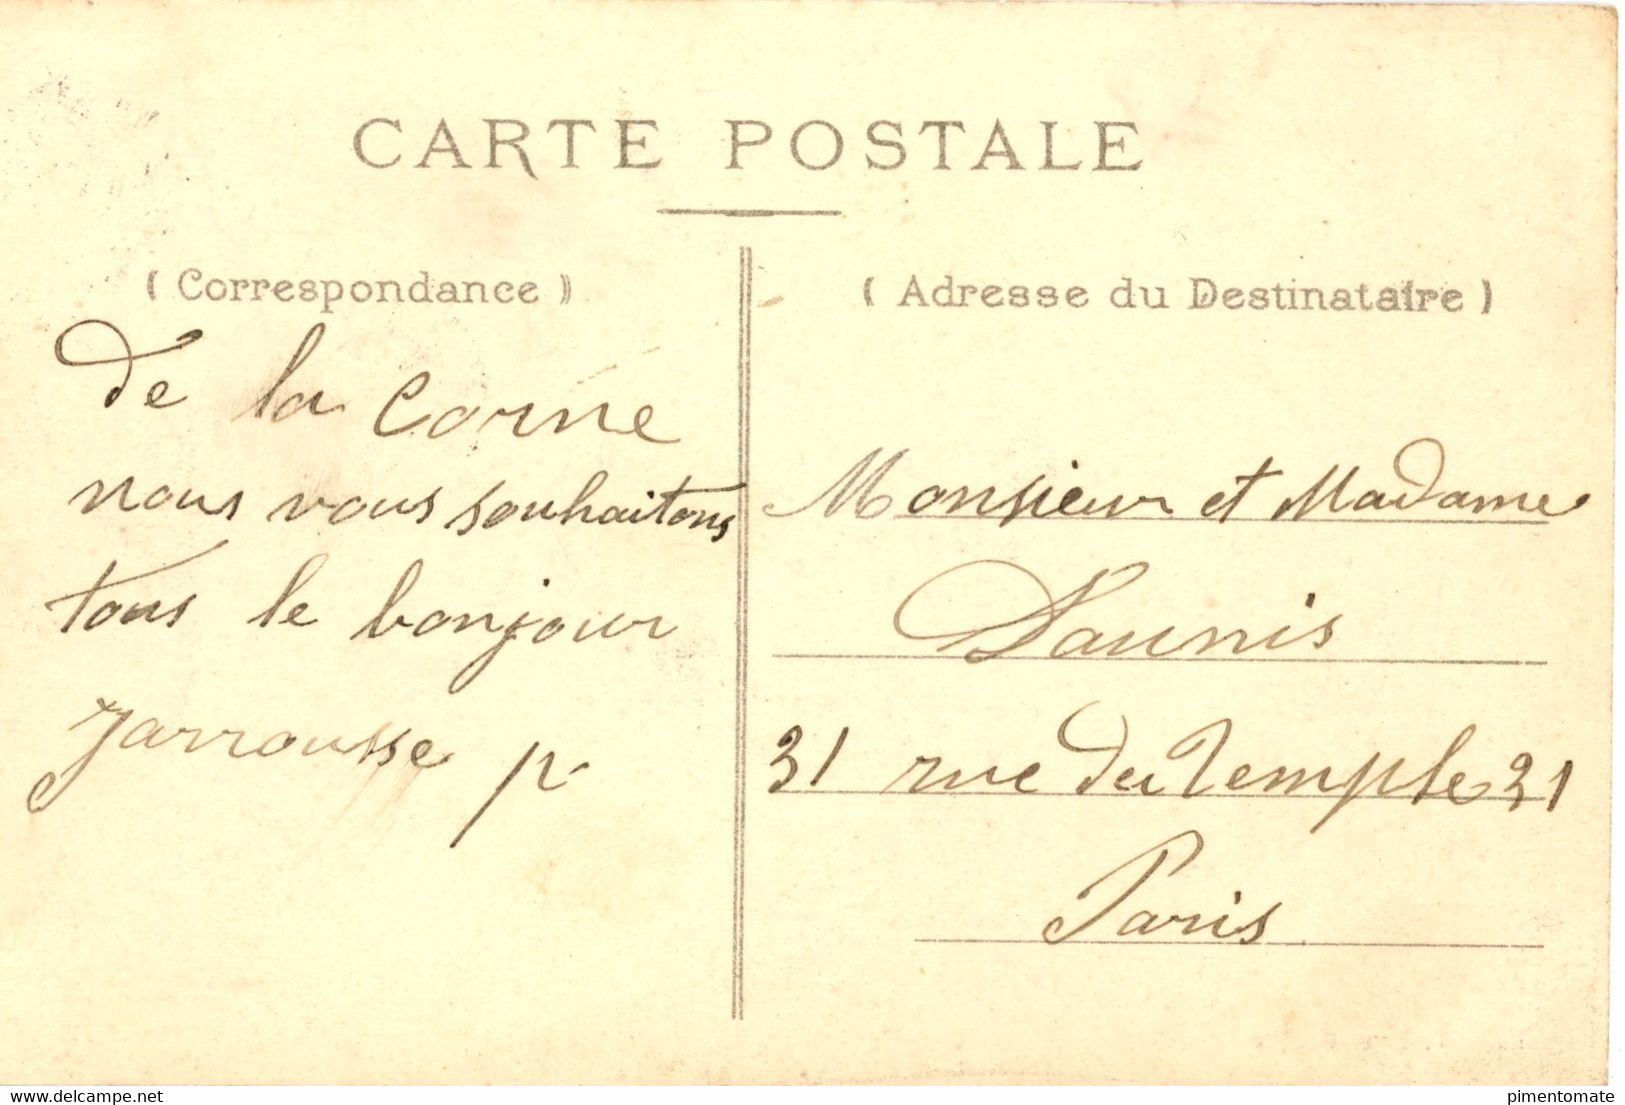 CARTE POSTALE
( Correspondance )
de la Corne
nous vous souhaitons
tous le bonjour
Jarrousse p
( Adresse du Destinataire )
Monsieur et Madame
Daunis
31 rue du Temple 31
Paris
https://www.delcampe.net
pimentomate